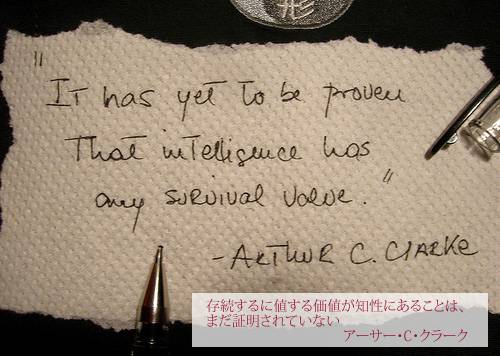 形
"It has yet to be proven
That intelligence has
any survival value."
-Arthur C. Clarke
存続するに値する価値が知性にあることは、
まだ証明されていない
アーサー・C・クラーク